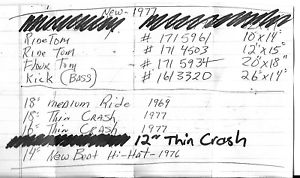 New - 1977
Ride Tom # 1715961 10"x14"
Ride Tom # 1714503 12"x15"
Floor Tom # 1715934 20"x18"
Kick (Bass) # 1613320 26"x14"
18" medium Ride 1969
18" Thin Crash 1977
16" Thin Crash 1977
12" Thin Crash
14" New Beat Hi-Hat - 1976